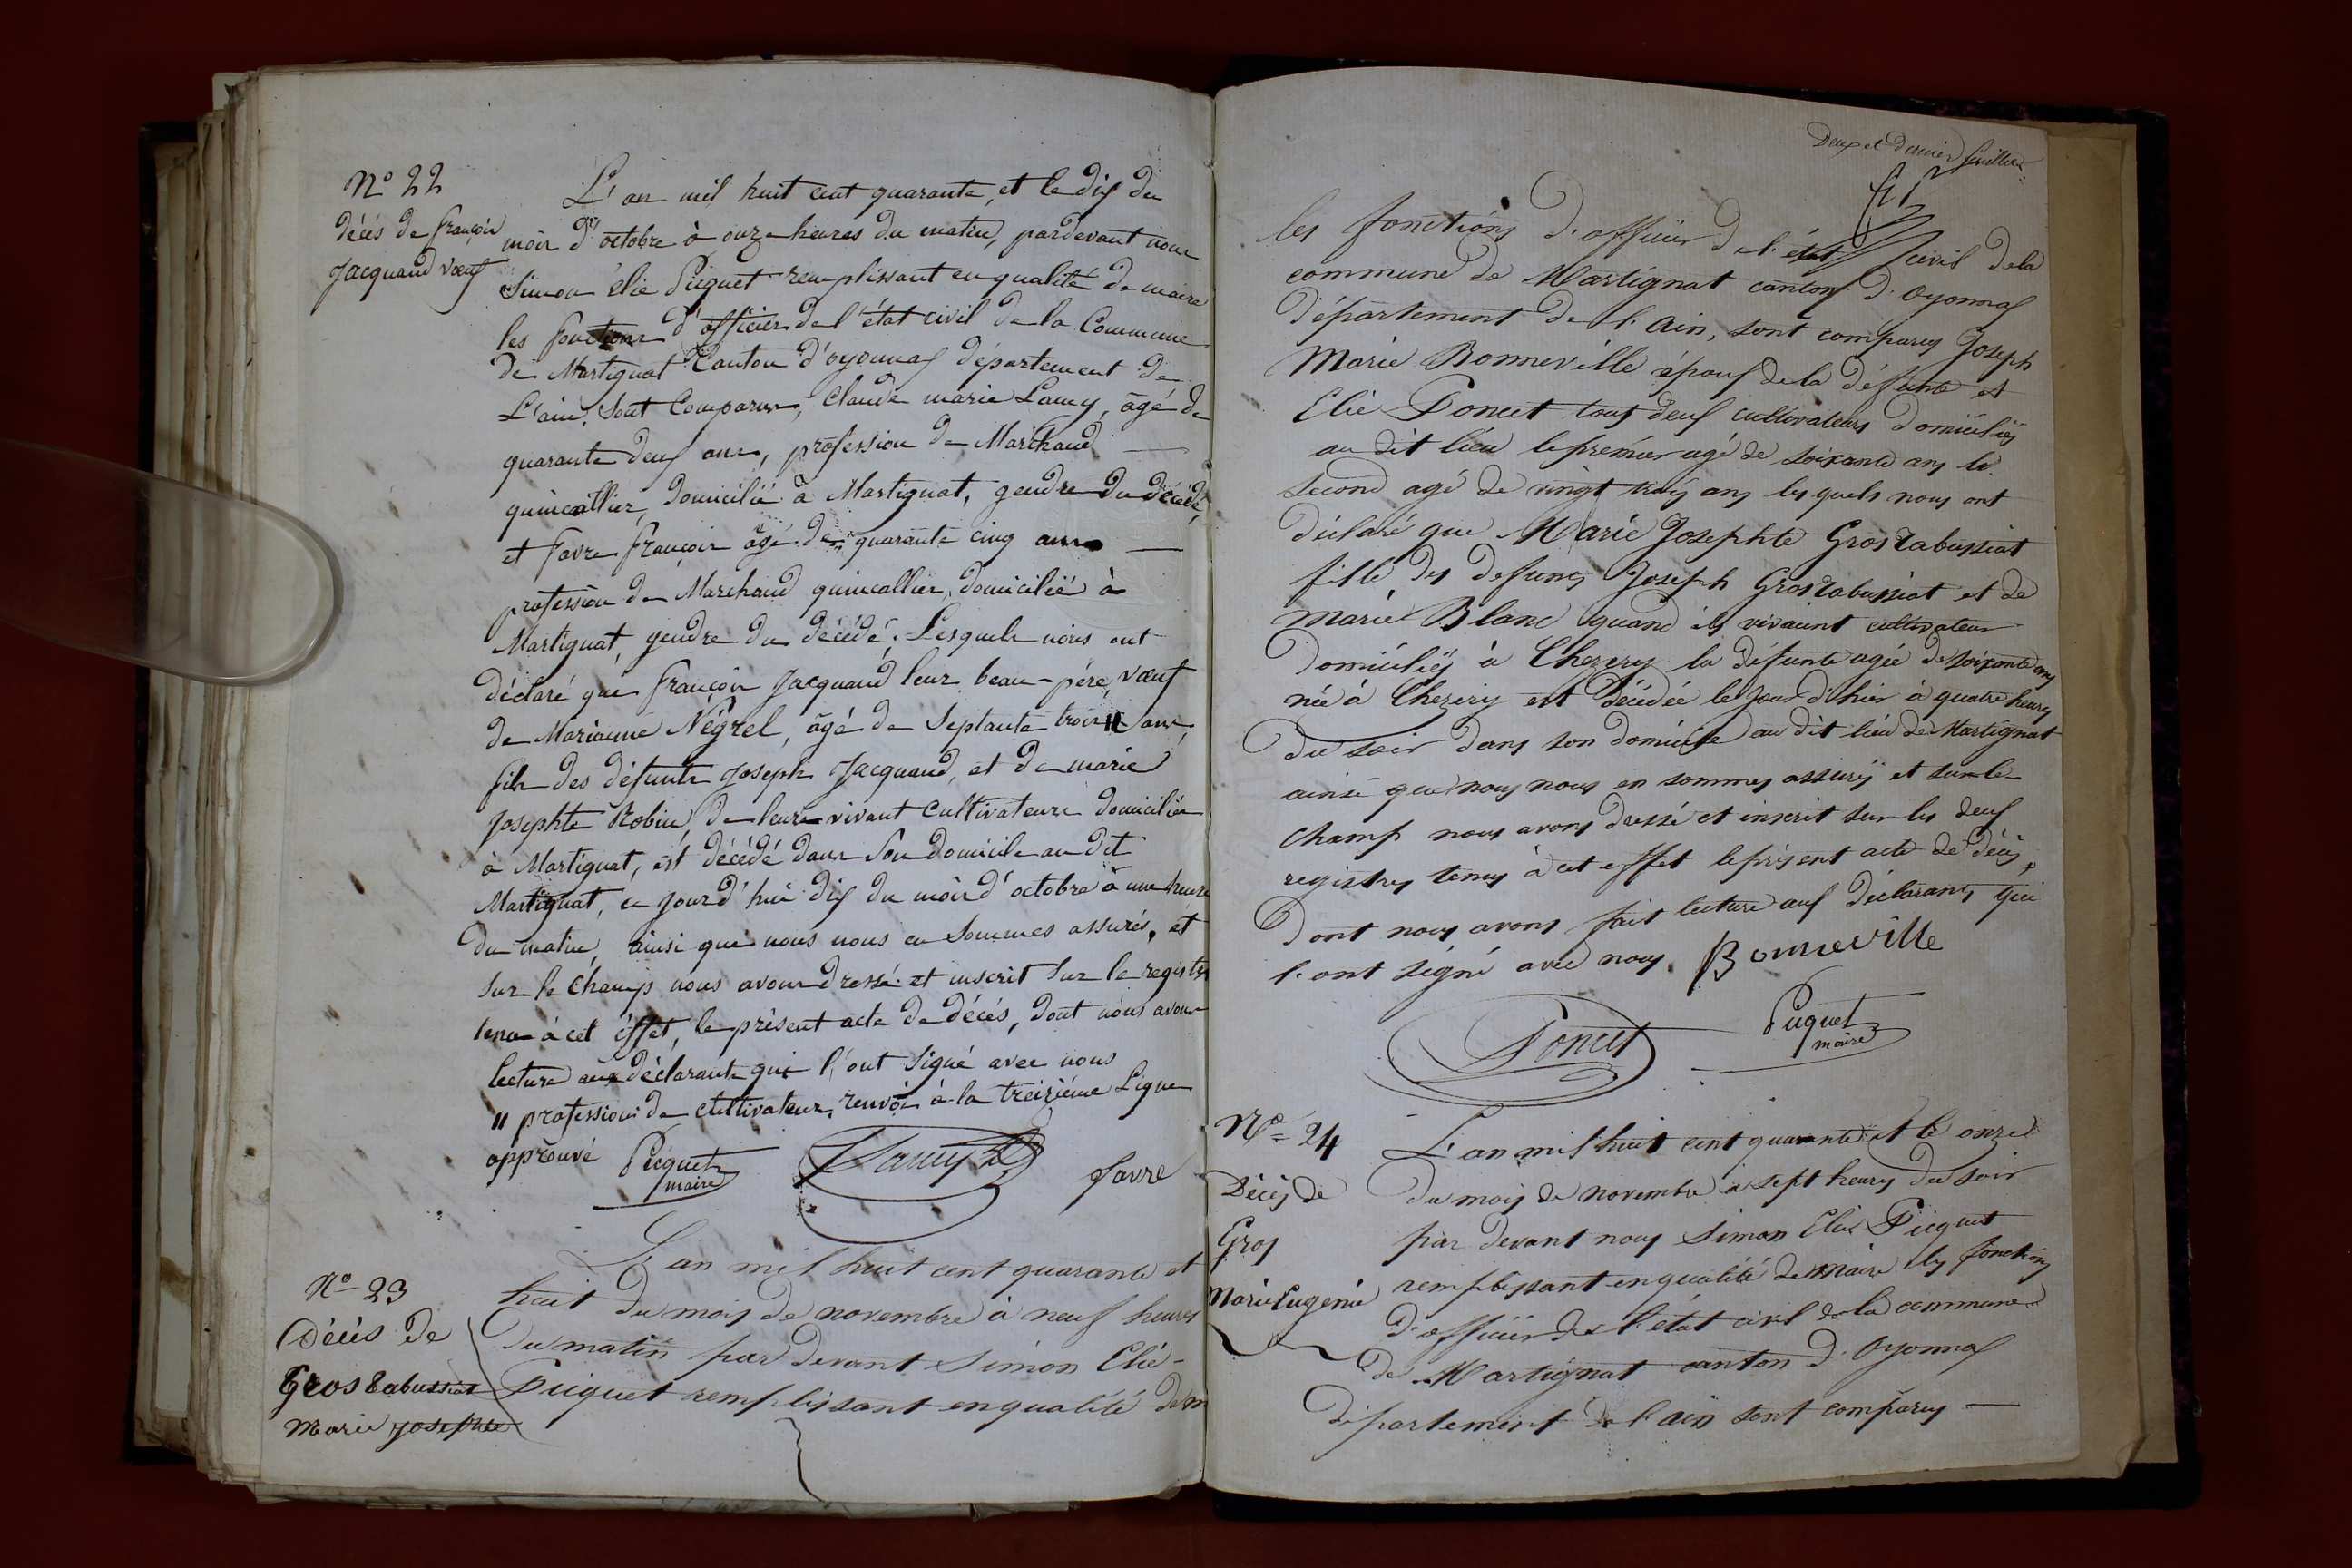 N° 22
décés de françois
Jacquand vœuf
L'an mil huit cent quarante, et le dix du
mois d'octobre à onze heures du matin, pardevant nous
Simon élie Picquet remplissant en qualité de maire
les fonctions d'officier de l'état civil de la Commune
de Martignat Canton d'oyonnax département de
L'ain, Sont Comparus, Claude marie Lamy, âgé de
quarante deux ans, profession de Marchand —
quincaillier, domicilié à Martignat, gendre du décédé,
et favre françois âgé de quarante cinq ans —
profession de Marchand quincallier, domicilié à
Martignat, gendre du décédé; Lesquels nous ont
déclaré que françois Jacquand leur beau-père, vœuf
de Marianne Négrel, âgé de Septante trois " ans,
fils des défunts Joseph Jacquand, et de marie
Josephte Robin, de leurs vivant Cultivateurs domiciliés
à Martignat, est décédé dans Son domicile au dit
Martignat, ce jourd'hui dix du mois d'octobre à une heure
du matin, ainsi que nous nous en Sommes assurés, et
Sur le Champ nous avons dressé et inscrit Sur le registre
tenu à cet éffet, le présent acte de décés, dont nous avons
lecture aux déclarants qui l'ont Signé avec nous
" profession de cultivateur, renvoi à la treizième Ligne
approuvé Picquet
maire
Lamy
favre
N° 23
Décés de
Gros tabussiat
Marie Josephte
L'an mil huit cent quarante et
huit du mois de novembre à neuf heures
du matin par devant Simon Elie-
Picquet remplissant en qualité de m
Deux et dernier feuillet
les fonctions d'officier de l'état civil de la
commune de Martignat canton d'Oyonnax
département de l'Ain, sont comparus Joseph
Marie Bonneville époux de la défunte et
Elie Poncet tous deux cultivateurs domiciliés
au dit lieu le premier agé de soixante ans le
second agé de vingt trois ans les quels nous ont
déclaré que Marie Josephte Gros tabussiat
fille des defunts Joseph Gros tabussiat et de
Marie Blanc quand ils vivaient cultivateurs
domiciliés à Chezery la défunte agée de soixante ans
née à Chezery est décédée le jour d'hier à quatre heures
du soir dans son domicile au dit lieu de Martignat
ainsi que nous nous en sommes assurés et sur le
champ nous avons dressé et inscrit sur les deux
registres tenus à cet effet le présent acte de décès,
dont nous avons fait lecture aux déclarants qui
l'ont signé avec nous. Bonneville
Poncet
Picquet
maire
N° 24
Décès de
Gros
Marie Eugénie
L'an mil huit cent quarante et le onze
du mois de novembre à sept heures du soir
par devant nous Simon Elie Picquet
remplissant en qualité de maire les fonctions
d'officier de l'état civil de la commune
de Martignat canton d'Oyonnax
département de l'ain sont comparus —